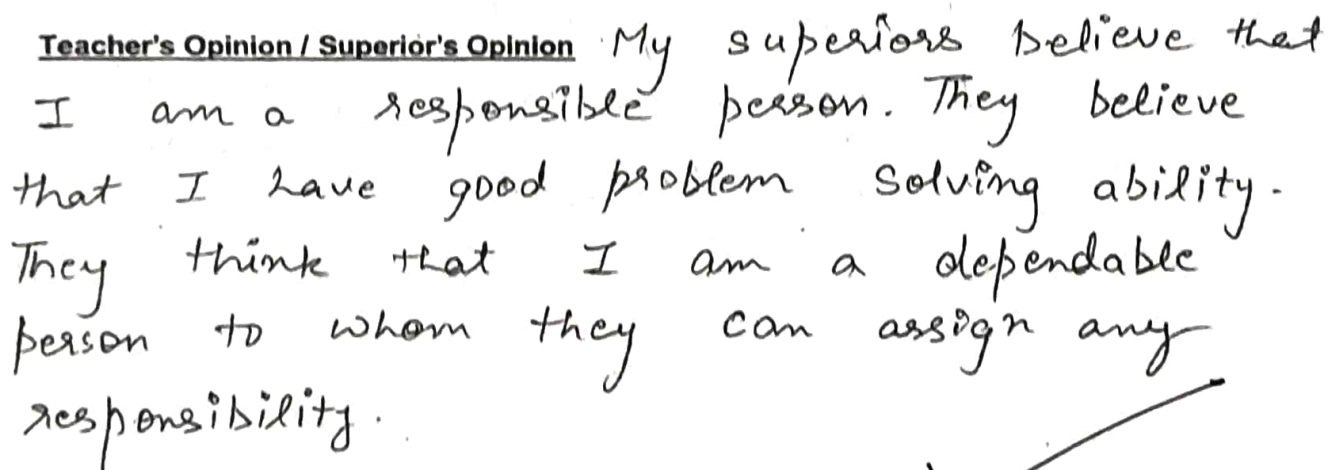 Teacher's Opinion / Superior's Opinion My superiors believe that
I am a responsible person. They believe
that I have good problem solving ability.
They think that I am a dependable
person to whom they can assign any
responsibility.